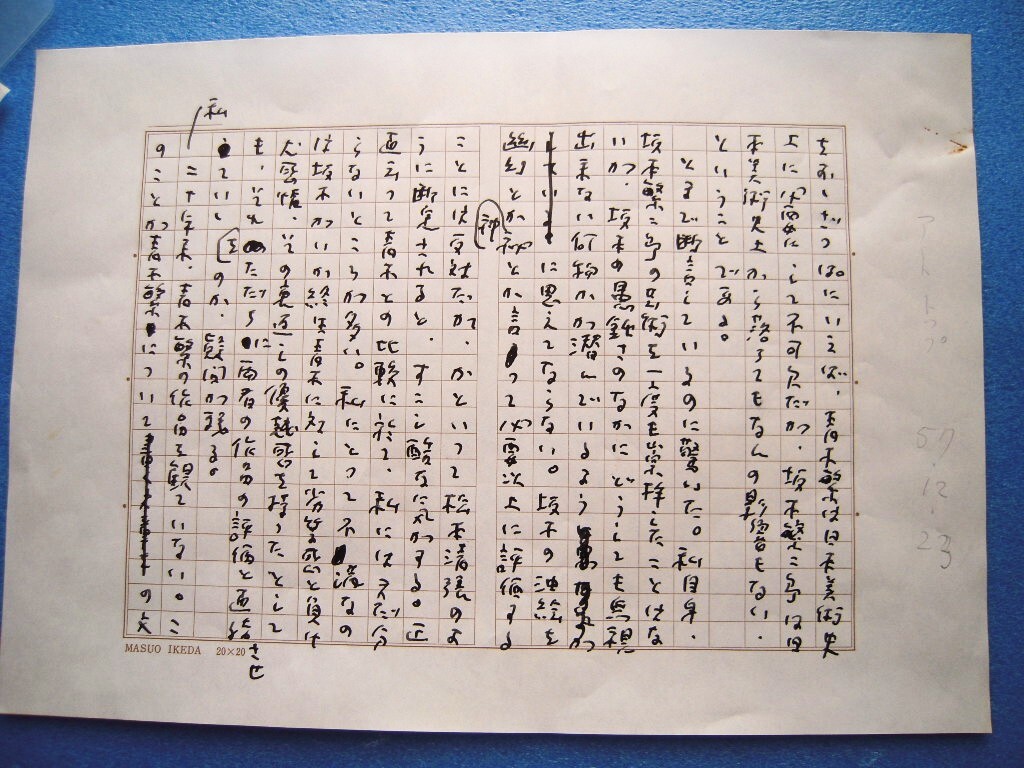 ちおいざっぱにいえば、青木繁は日本美術史
上に必要にして不可欠だが、坂本繁二郎は日
本美術史上から落ちてもなんの影響もない、
ということである。
とまで断言しているのに驚いた。私自身、
坂本繁二郎の芸術を一度も崇拝したことはな
いが、坂本の愚鈍さのなかにどうしても無視
出来ない何物かが潜んでいるよう
に思えてならない。坂本の油絵を
幽幻とか神秘とか言って必要以上に評価する
ことには反対だが、かといって松本清張のよ
うに断定されると、すこし酷な気がする。正
直言って青木との比較に於て、私にはまだ分
らないところが多い。私にとって不満なの
は坂本がいかが終生青木に対して劣等感を負け
犬感情、その裏返しの優越感を持ったとして
も、それをただちに両者の作品の評価と直結させ
ていいものか、疑問が残る。
私
二十年来、青木繁の作品を観ていない。こ
のことが青木繁についての文
MASUO IKEDA 20×20
アートトップ
57.12.23